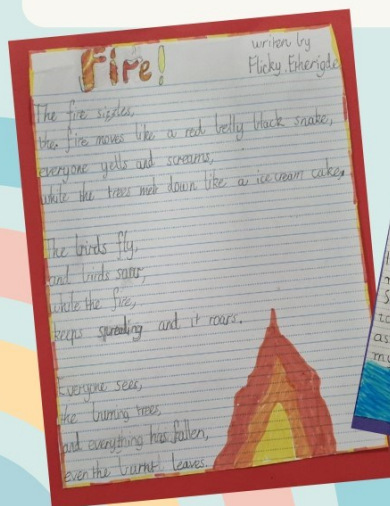 Fire!
writen by
Flicky.Etherigde
The fire sizzles,
the fire moves like a red belly black snake,
everyone yells and screams,
while the trees melt down like a icecream cake,
The birds fly,
and birds soar,
while the fire,
keeps spreading and it roars.
Everyone sees,
the burning trees,
and everything has fallen,
even the burnt leaves.
as
my